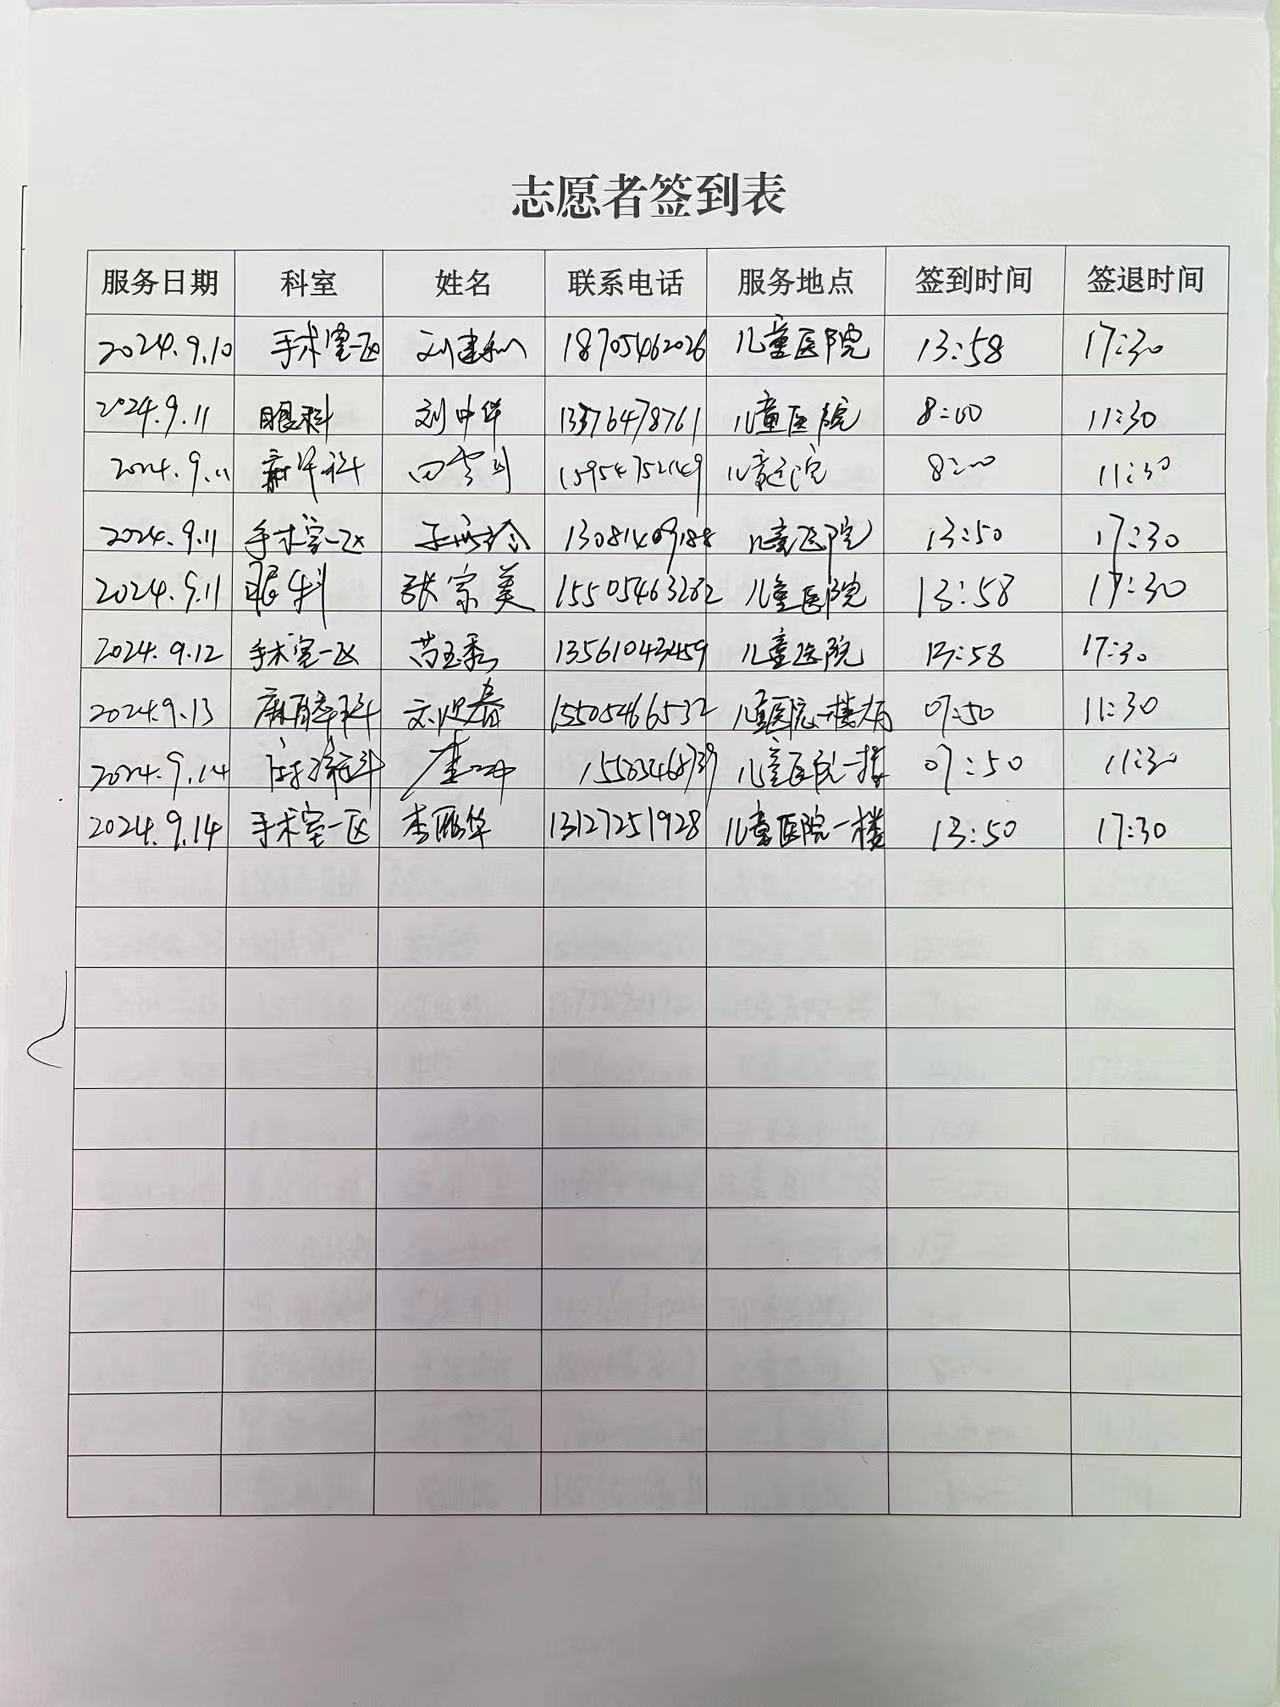 志愿者签到表
服务日期 科室 姓名 联系电话 服务地点 签到时间 签退时间
2024.9.10 手术室一区 刘建和 18705462026 儿童医院 13:58 17:30
2024.9.11 眼科 刘中华 13376478761 儿童医院 8:00 11:30
2024.9.11 麻醉科 15954752149 儿童医院 8:00 11:30
2024.9.11 手术室一区 13081409188 儿童医院 13:50 17:30
2024.9.11 眼科 张宗美 15505463282 儿童医院 13:58 17:30
2024.9.12 手术室一区 苗玉秀 13561043459 儿童医院 13:58 17:30
2024.9.13 麻醉科 春 15505466532 儿童医院一楼 07:50 11:30
2024.9.14 科 儿童医院一楼 07:50 11:30
2024.9.14 手术室一区 李丽华 13127251928 儿童医院一楼 13:50 17:30